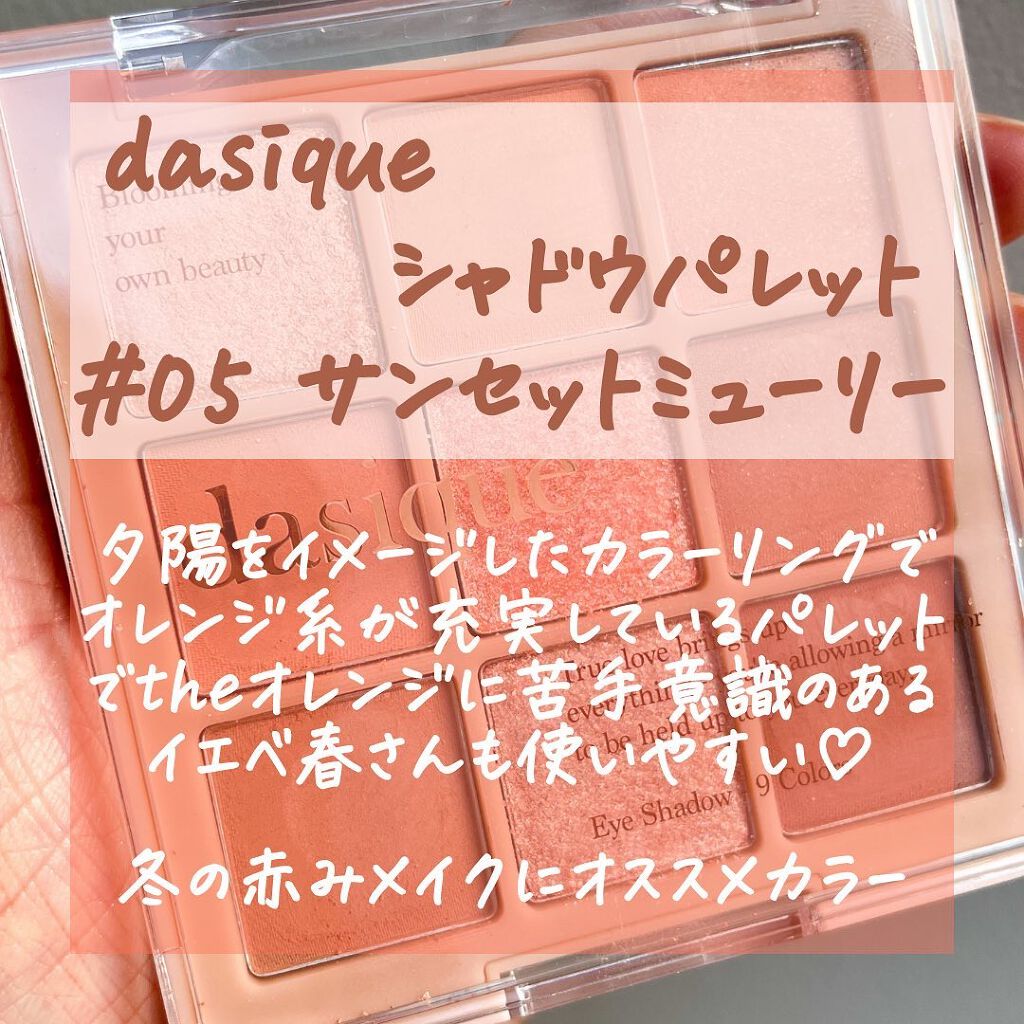 dasique
シャドウパレット
#05 サンセットミューリー
Blooming
your
own beauty
dasique
夕陽をイメージしたカラーリングで
オレンジ系が充実しているパレット
でtheオレンジに苦手意識のある
イエベ春さんも使いやすい♡
True love brings up
allowing a mirror
to be held up
Eye Shadow 9 Colors
冬の赤みメイクにオススメカラー